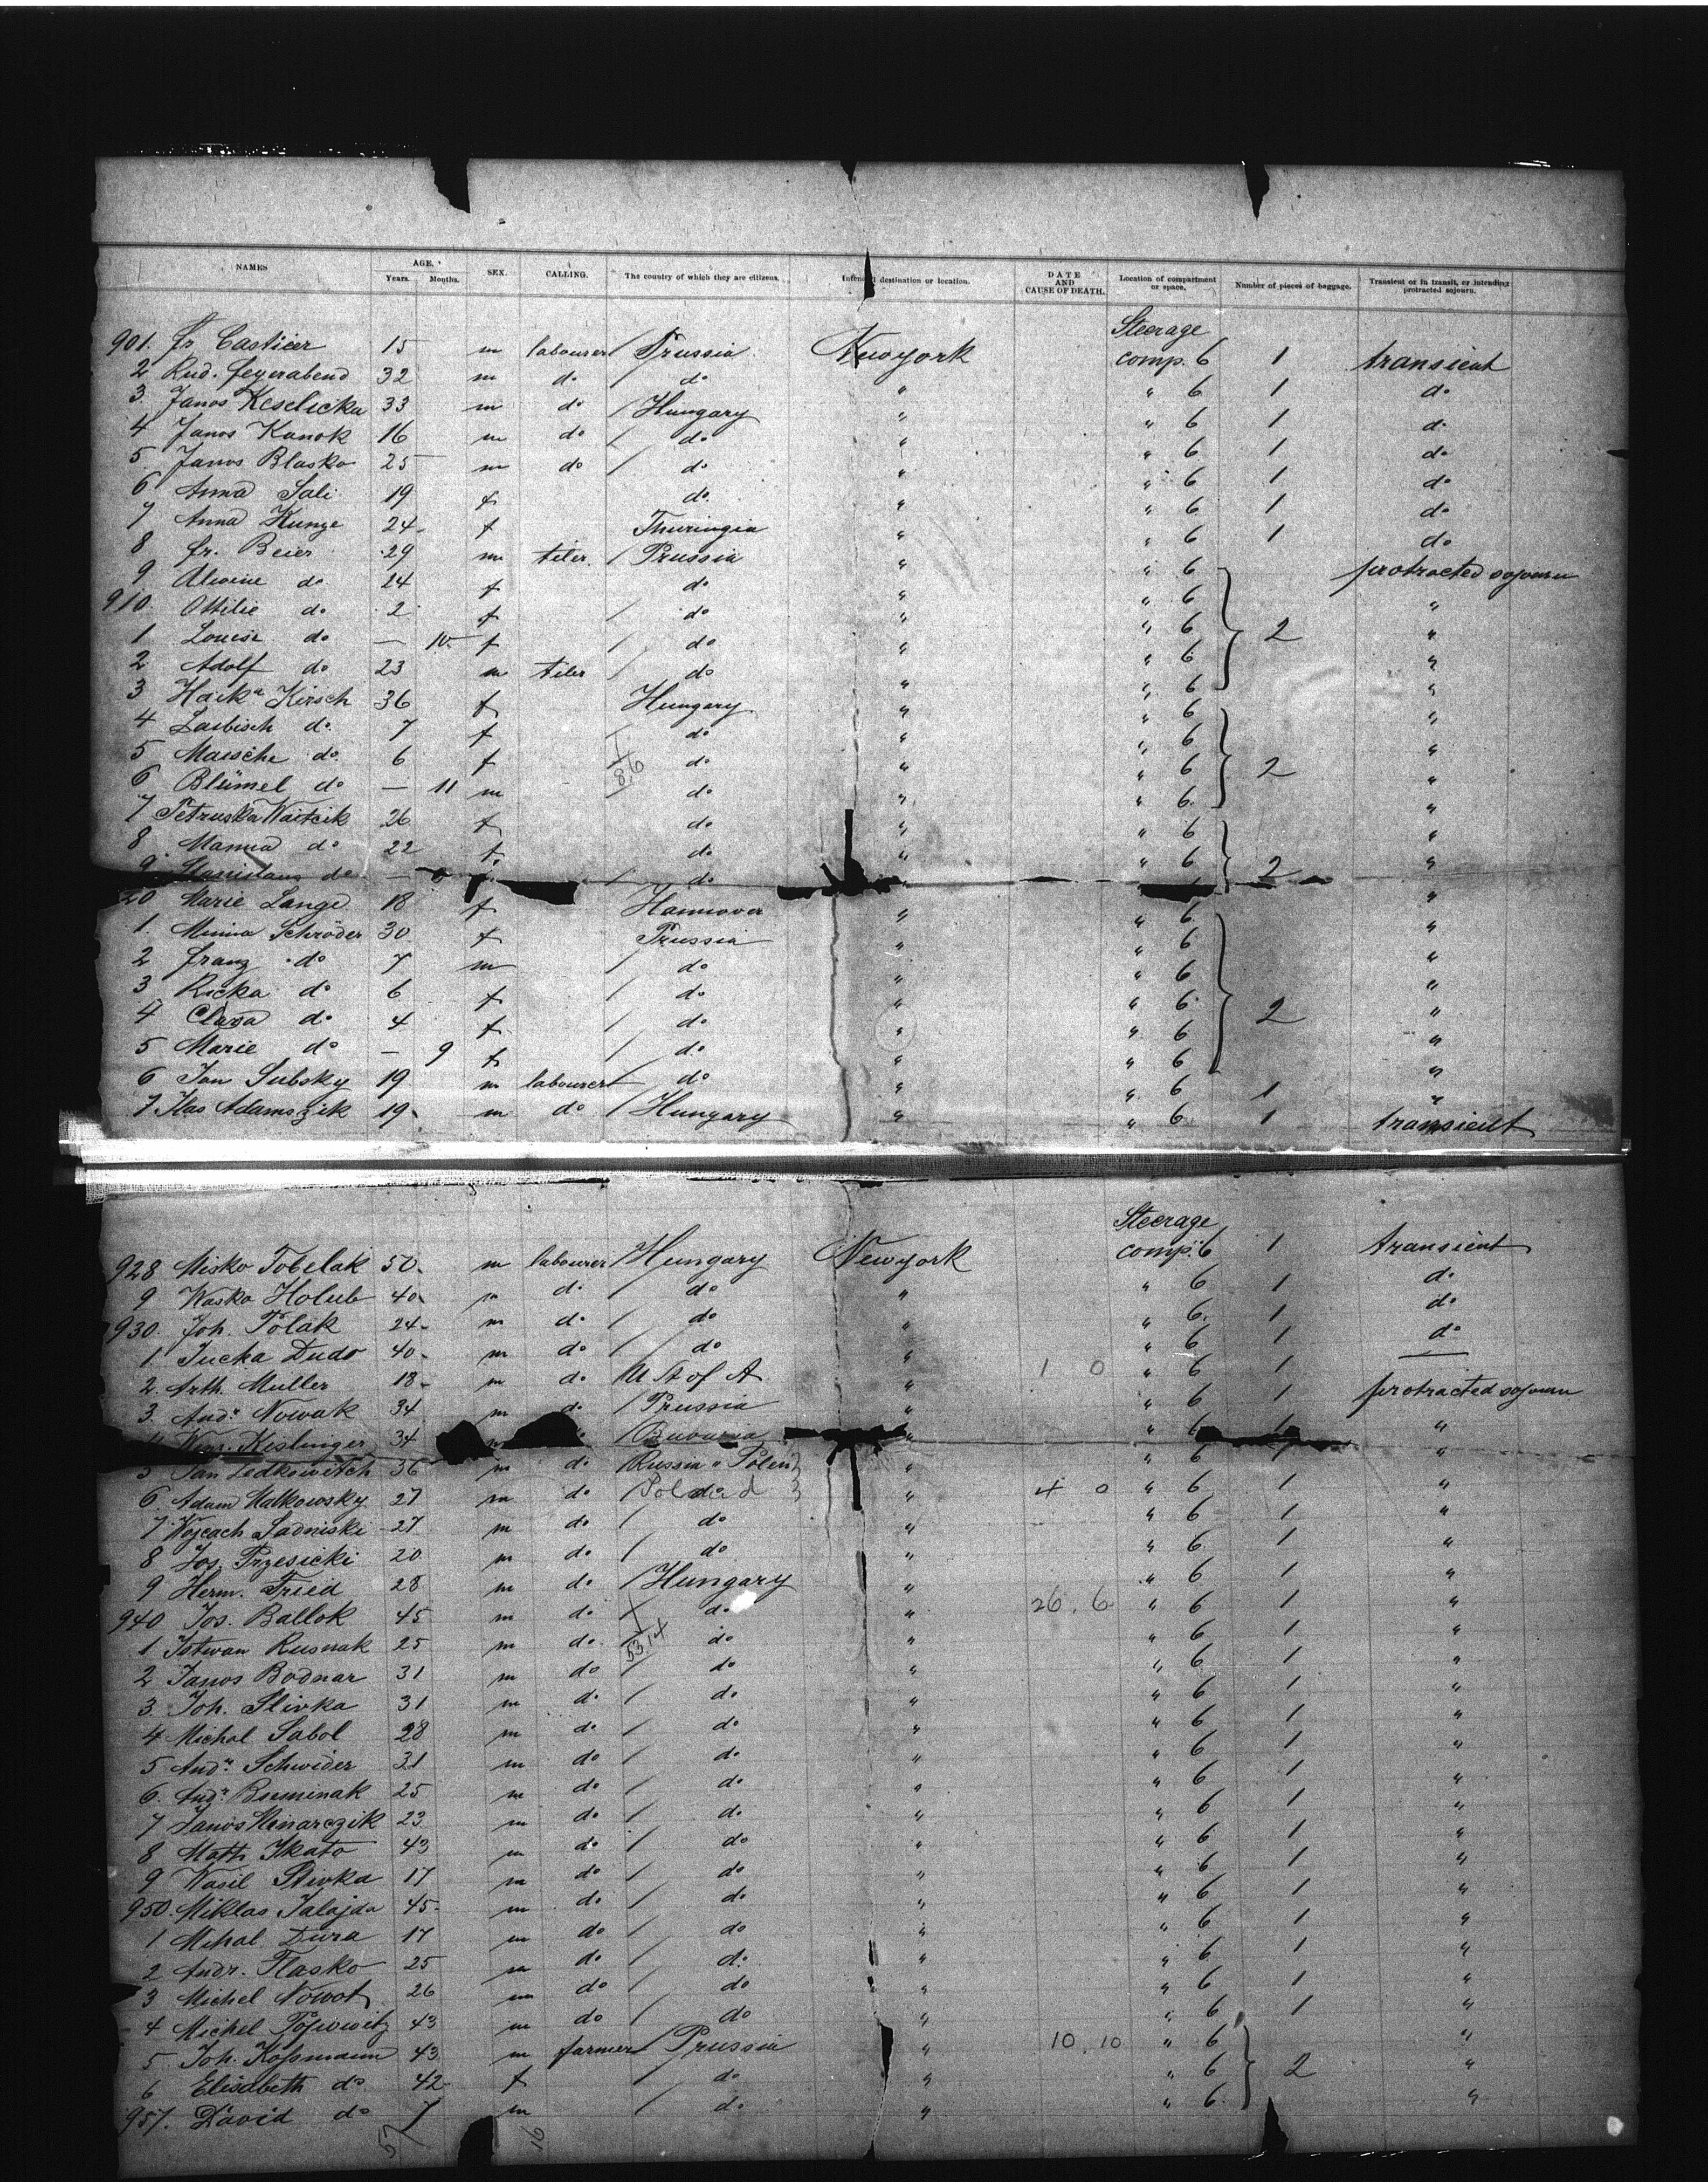 NAMES AGE. Years. Months. SEX. CALLING. The country of which they are citizens. Intended destination or location. DATE AND CAUSE OF DEATH. Location of compartment or space. Number of pieces of baggage. Transient or in transit, or intending protracted sojourn.
Steerage
901. Fr. Casticer 15 m labourer / Prussia Newyork comp. 6 1 transient
2 Rud. Feyerabend 32 m do / do " " 6 1 do
3. Janos Keselicka 33 m do / Hungary " " 6 1 do
4 Janos Kanok 16 m do / do " " 6 1 do
5. Janos Blasko 25 m do / do " " 6 1 do
6 Anna Sali 19 f do " " 6 1 do
7 Anna Kunze 24 f Thuringia " " 6 1 do
8 Fr. Beier 29 m tiler. / Prussia " " 6 protracted sojourn
9 Alwine do 24 f do " " 6 "
910. Ottilie do 2 f / do " " 6 2 "
1 Louise do — 10 f / do " " 6 "
2 Adolf do 23 m tiler / do " " 6 "
3 Haika Kirsch 36 f Hungary " " 6 "
4 Laibisch do 7 f / do " " 6 "
5 Maische do 6 f / do " " 6 2 "
6 Blümel do — 11 m / do " " 6 "
7 Petruska Waitcik 26 f do " " 6 "
8 Manna do 22 f do " " 6 2 "
9 Stanislaus do — / do "
20 Marie Lange 18 f Hannover " " 6 "
1. Minna Schröder 30 f Prussia " " 6 "
2 Franz do 7 m / do " " 6 "
3 Ricka do 6 f / do " " 6 2 "
4 Clara do 4 f / do " " 6 "
5 Marie do — 9 f / do " " 6 "
6 Jan Subsky 19 m labourer do " " 6 1 "
7 Ilas Adamszik 19 m do / Hungary " " 6 1 transient
Steerage
928 Misko Tobelak 50 m labourer / Hungary Newyork comp. 6 1 transient
9 Wasko Holub 40 m do / do " " 6 1 do
930. Joh. Polak 24 m do / do " " 6 1 do
1 Jucka Dudo 40 m do / do " " 6 1 do
2. Arth. Muller 18 m do U St of A " 1 0 " 6 1 —
3. Andr. Nowak 34 m do / Prussia " " 6 1 protracted sojourn
Keslinger 34 / Bavaria " " 6 1 "
5 Jan Ledkowitch 36 m do / Russia " Polen " " 6 1 "
6. Adam Malkowsky 27 m do / Poland " 4 0 " 6 1 "
7 Wojcach Sadniski 27 m do / do " " 6 1 "
8 Jos. Przesicki 20 m do / do " " 6 1 "
9 Herm. Fried 28 m do / Hungary " " 6 1 "
940 Jos. Ballok 45 m do / do " 26.6 " 6 1 "
1 Istwan Rusnak 25 m do / do " " 6 1 "
2 Janos Bodnar 31 m do / do " " 6 1 "
3. Joh. Slivka 31 m do / do " " 6 1 "
4 Michal Sabol 28 m do / do " " 6 1 "
5 Andr. Schwider 31 m do / do " " 6 1 "
6. Andr. Buminak 25 m do / do " " 6 1 "
7 Janos Minarczik 23 m do / do " " 6 1 "
8 Math. Ikato 43 m do / do " " 6 1 "
9 Wasil Slivka 17 m do / do " " 6 1 "
950. Miklas Jalajda 45 m do / do " " 6 1 "
1 Mihal Dura 17 m do / do " " 6 1 "
2 Andr. Flasko 25 m do / do " " 6 1 "
3 Michel Nowot 26 m do / do " " 6 1 "
4 Michel 43 m do / do " " 6 1 "
5 Joh. Kossmann 43 m farmer / Prussia " 10.10 " 6 "
6 Elisabeth do 42 f / do " " 6 2 "
957. David do 7 m / do " " 6 "